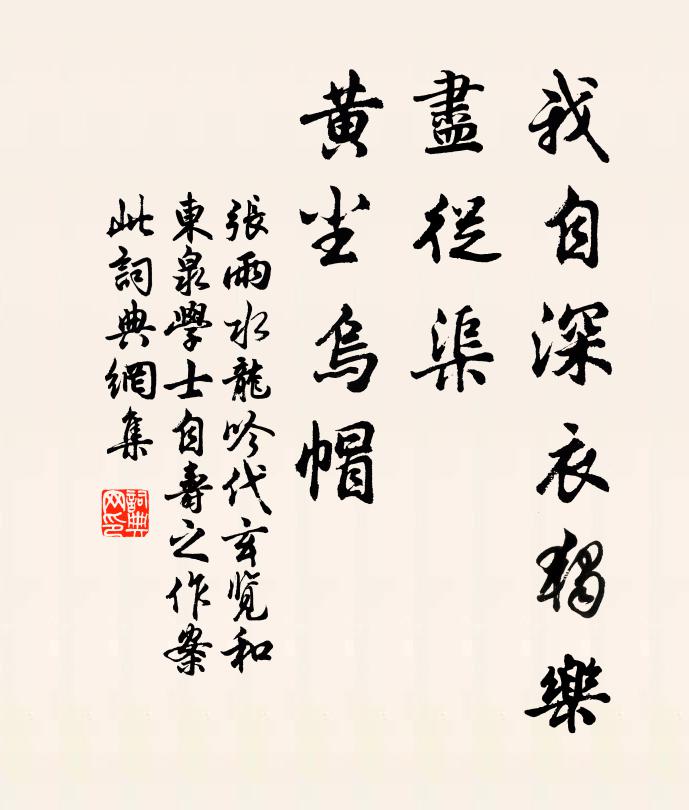 我自深衣獨樂
盡從渠
黃塵烏帽
張雨水龍吟代玄覽和
東泉學士自壽之作案
此詞典網集
詞典網印